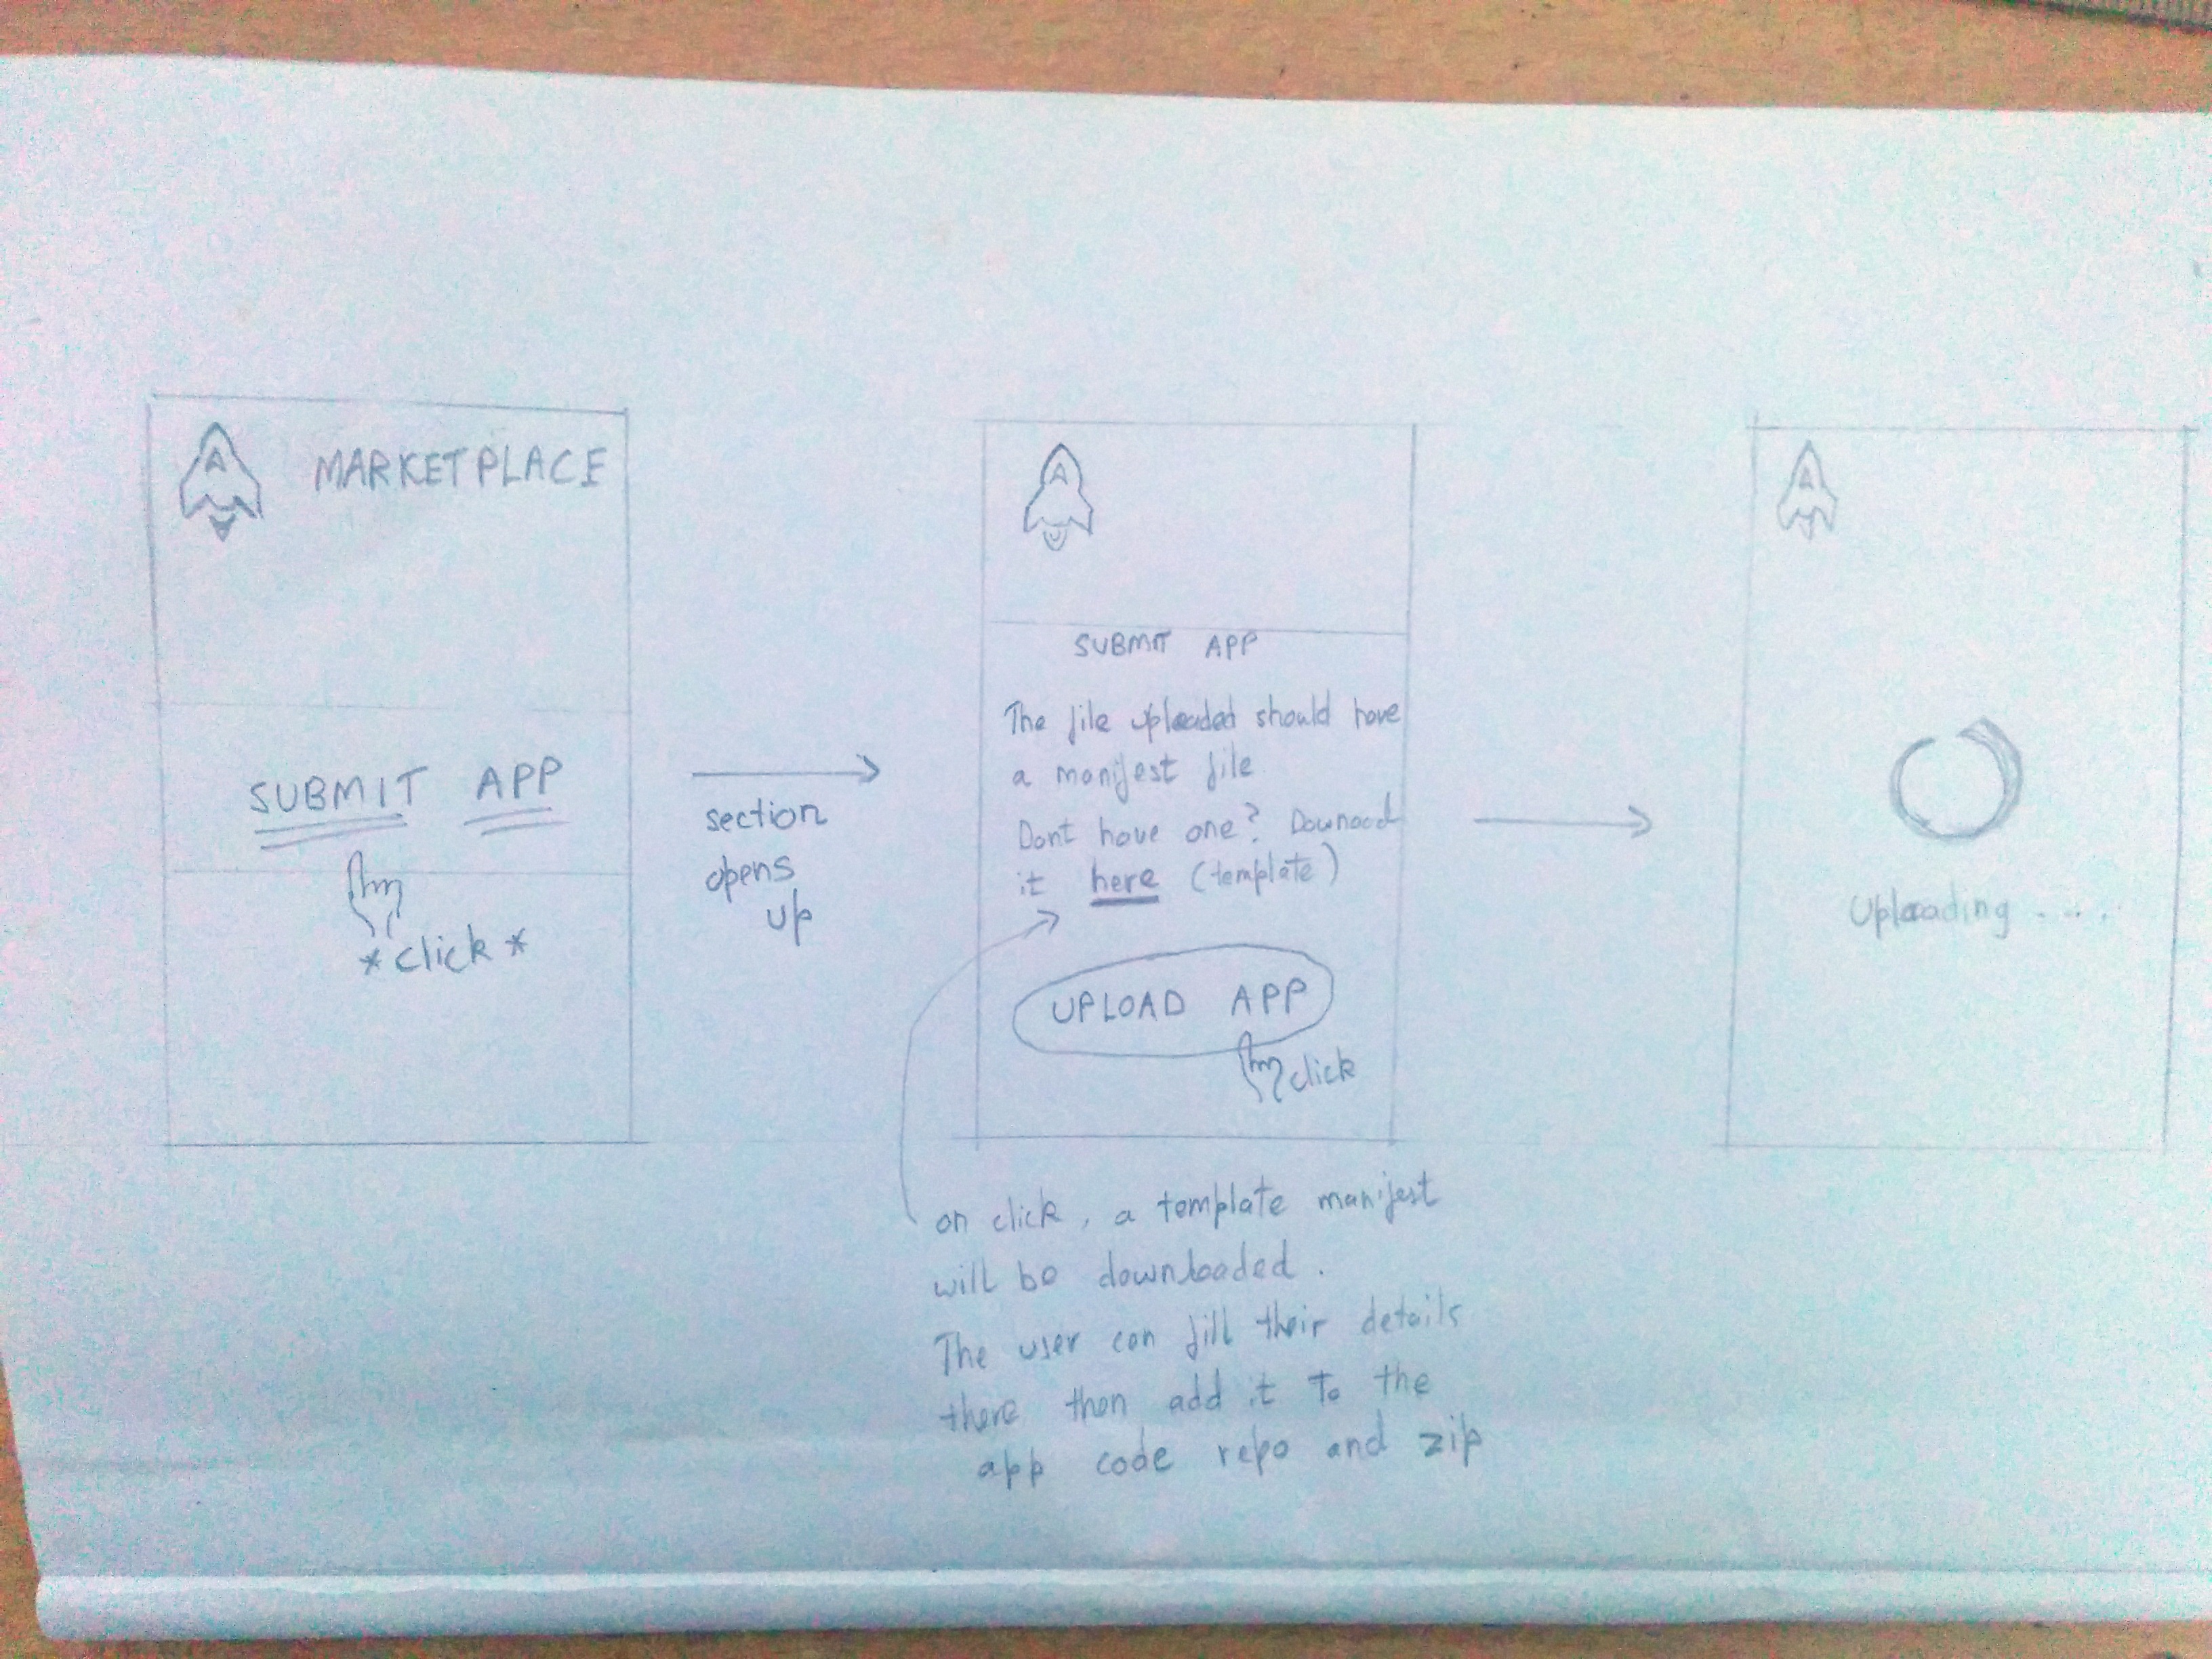 A MARKETPLACE
SUBMIT APP
*click*
section
opens
up
A
SUBMIT APP
The file uploaded should have
a manifest file
Dont have one? Downoad
it here (template)
UPLOAD APP
click
on click, a template manifest
will be downloaded.
The user can fill their details
there then add it to the
app code repo and zip
A
Uploading ....